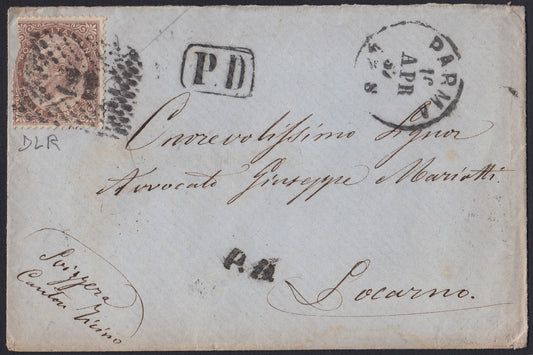 P.D
PARMA
APR
DLR
Onorevolissimo Signor
Avvocato Giuseppe Mariotti
P.D.
Locarno.
Svizzera
Canton Ticino